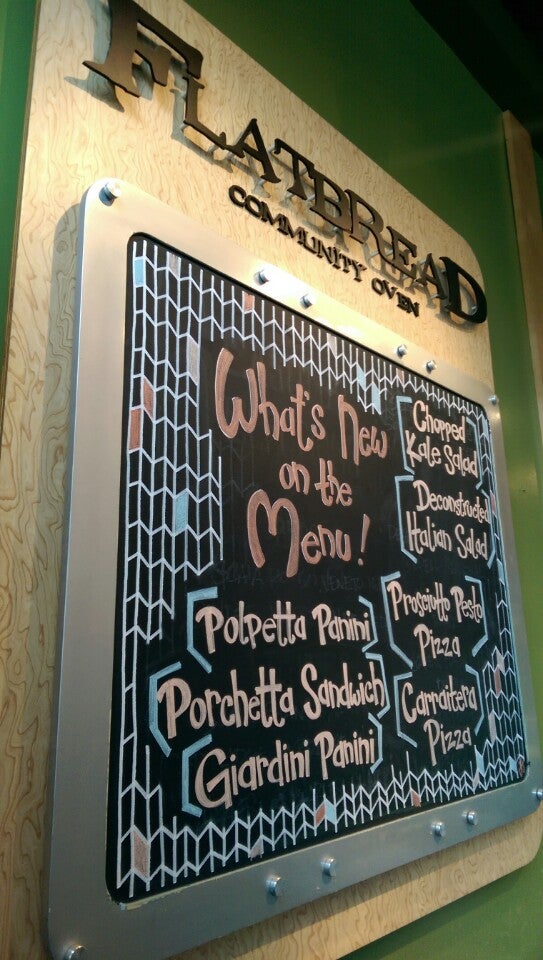 FLATBREAD
COMMUNITY OVEN
What's New
on the
Menu!
Polpetta Panini
Porchetta Sandwich
Giardini Panini
Chopped
Kale Salad
Deconstructed
Italian Salad
Prosciutto Pesto
Pizza
Carraitera
Pizza